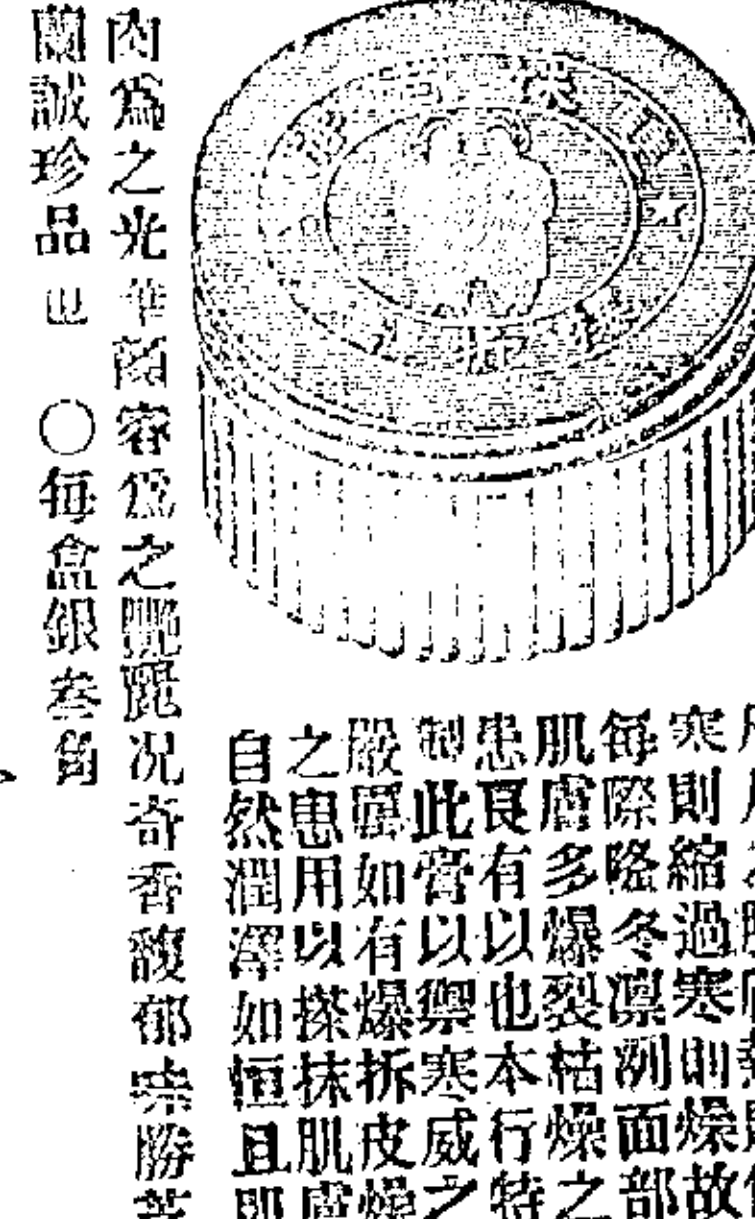 寒則縮過寒則燥故
每際隆冬凛冽面部
肌膚多爆裂枯燥之
患良有以也本行特
製此膏以禦寒威之
嚴厲如有爆拆皮燥
之患用以搽抹肌膚
自然潤澤如恒且肌
肉爲之光華顏容爲之艷麗况奇香馥郁 勝
蘭誠珍品也 〇每盒銀叁角